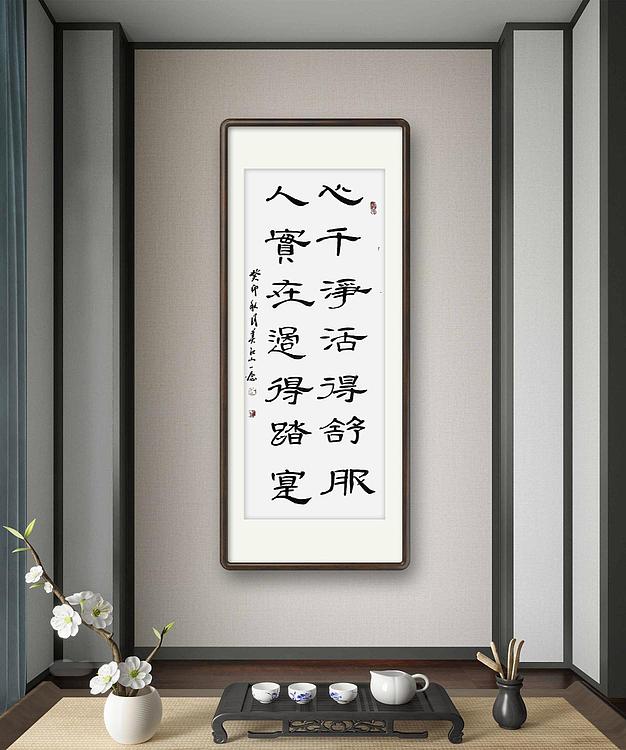 心千淨活得舒服
人實在過得踏寔
癸卯秋月